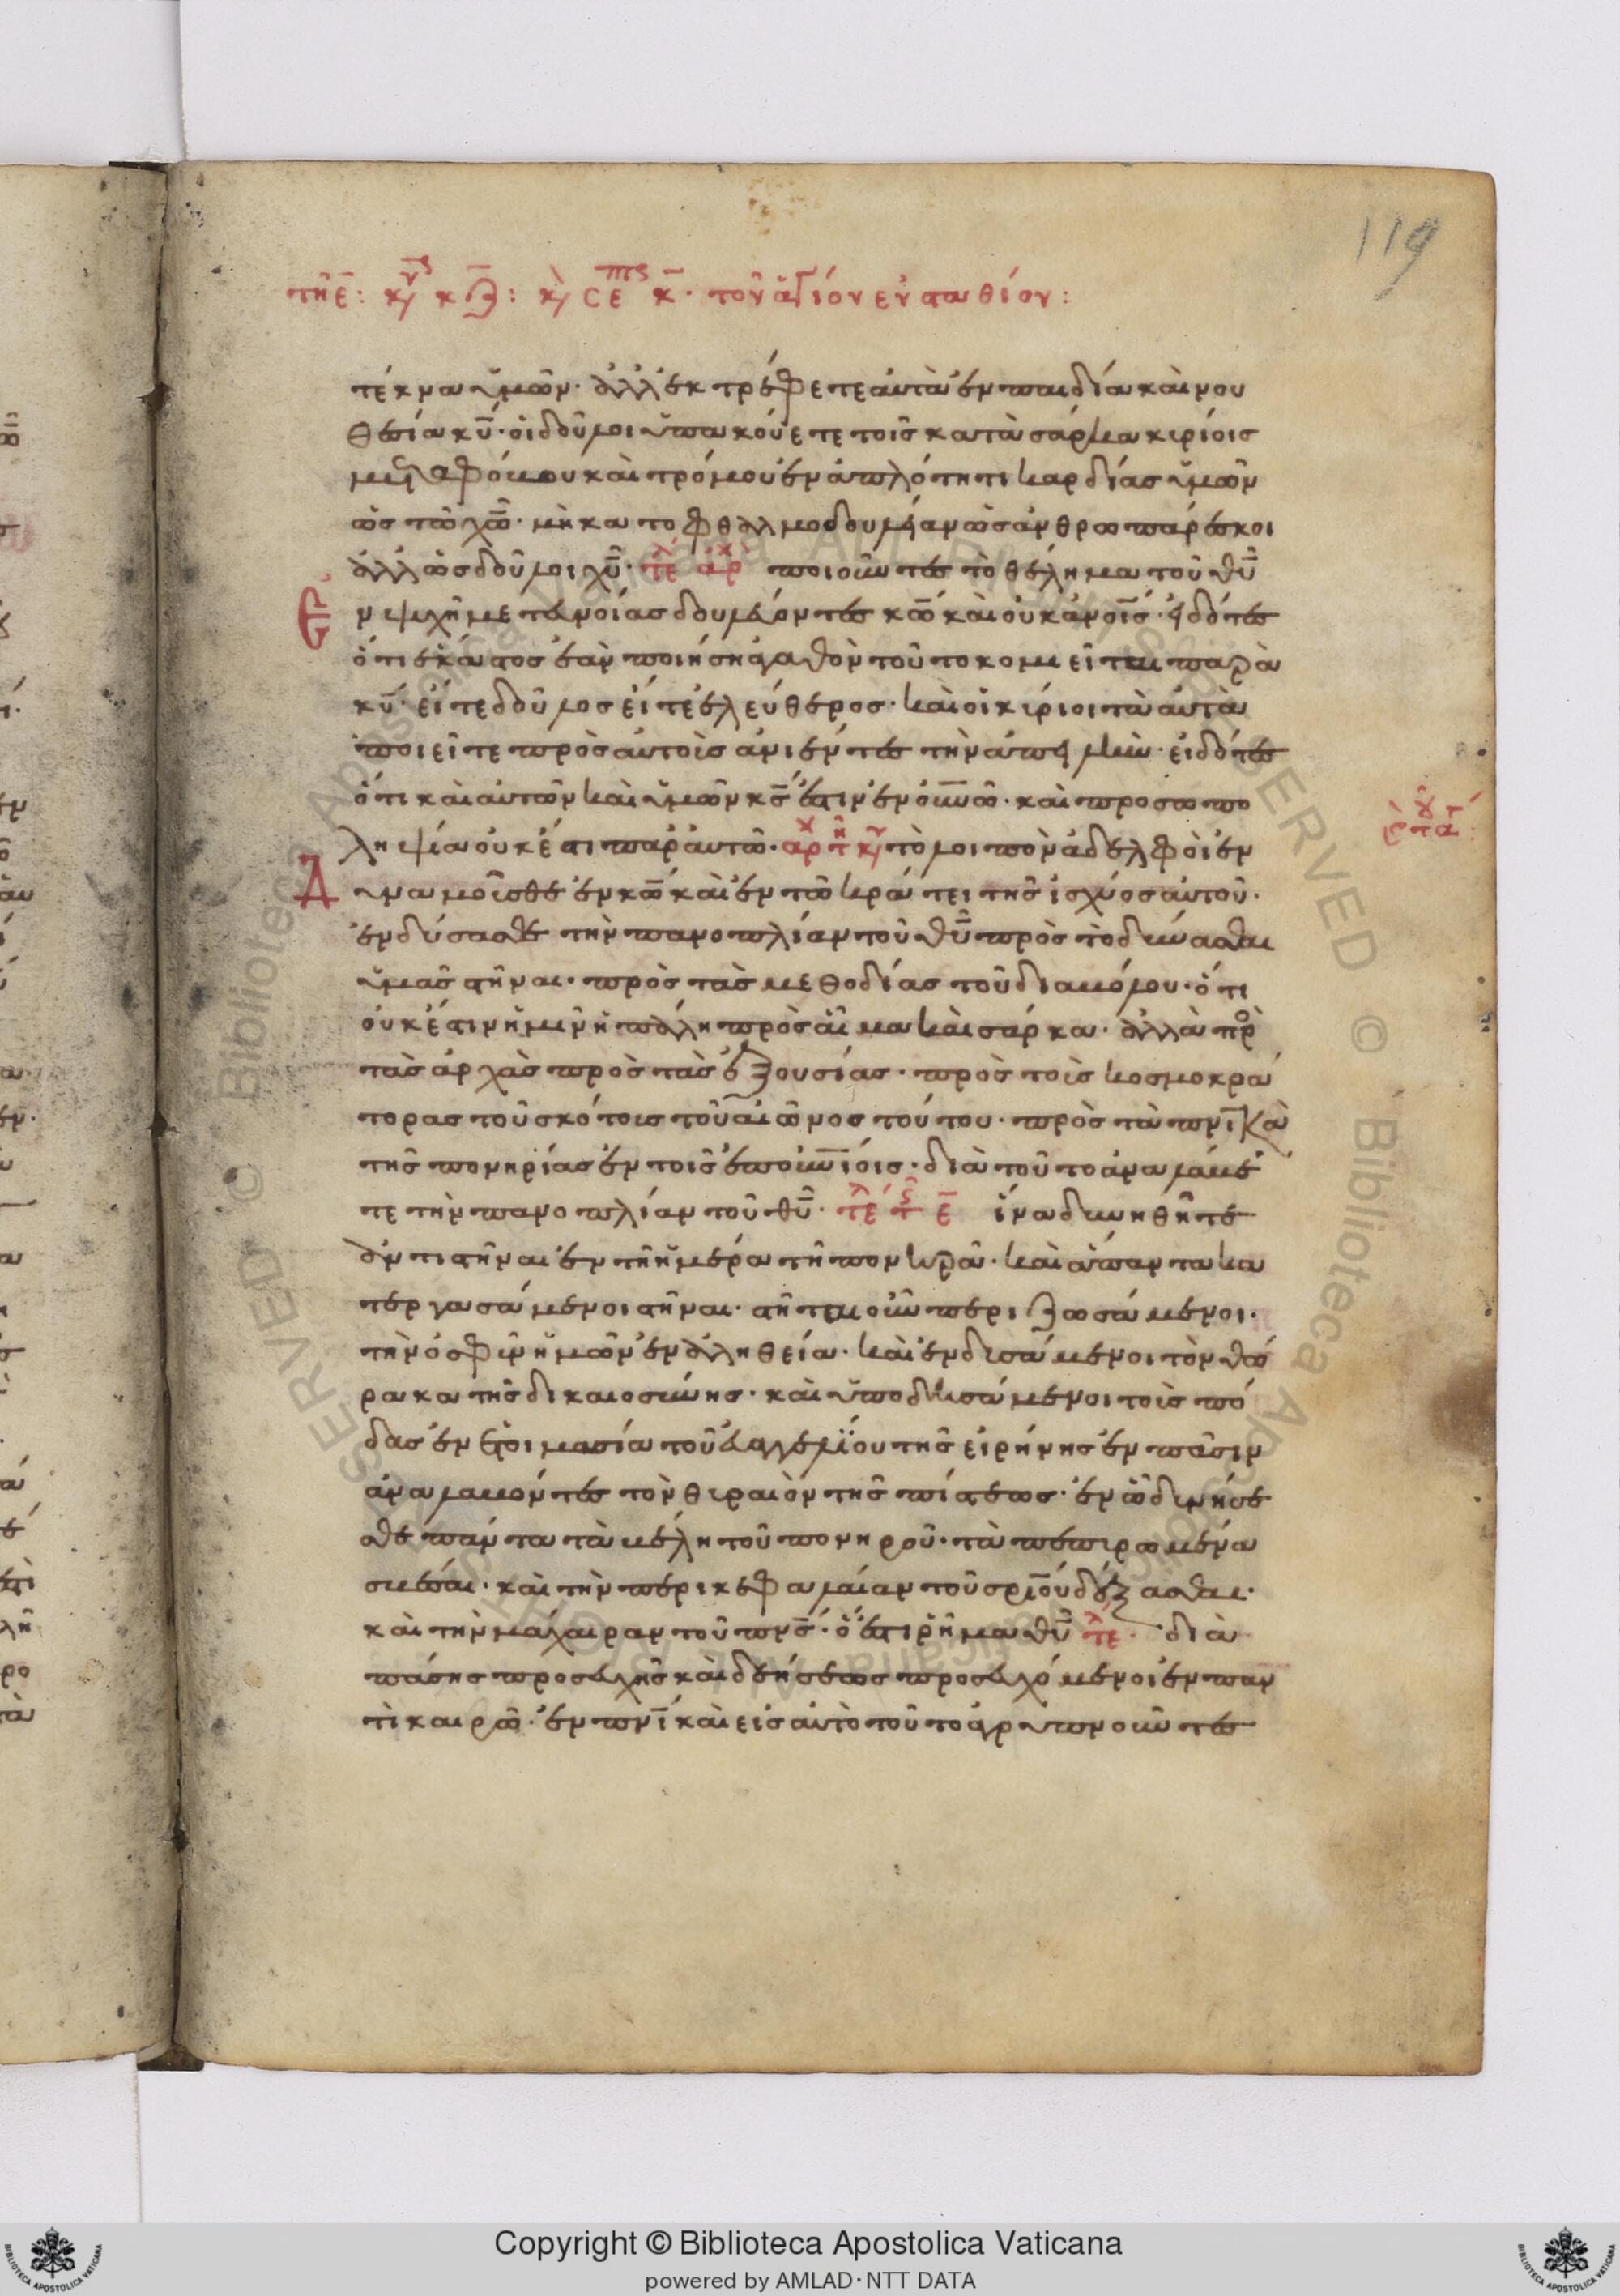 119
τῆ ε̅: κ(αι) κυ κζ̅: κ(αι) σεπ κ̅· τοῦ ἁγίου εὐσταθίου:
τέκνα ὑμῶν· ἀλλ' ἐκτρέφετε αὐτὰ ἐν παιδία καὶ νου
θεσία κ̅υ̅· οἱ δοῦλοι ὑπακούετε τοῖς κατὰ σάρκα κιρίοις
μετὰ φόβου καὶ τρόμου ἐν ἁπλότητι καρδίας ὑμῶν
ὡς τῶ χ̅ω̅· μὴ κατ' οφθαλμοδουλείαν ὡς ἀνθρωπαρέσκοι
ἀλλ' ὡς δοῦλοι χ̅υ̅· τε αρχ ποιοῦντες τὸ θέλημα τοῦ θ̅υ̅
ν ψυχῆ μετανοίας δουλεύοντες κ̅ω̅ καὶ οὐκ ἀνοῖς· εἰδότες
ὁτι ἑκάστος ἐὰν ποιήση ἀγαθὸν τοῦτο κομιεῖται παρὰ
κ̅υ̅· εἴτε δοῦλος εἴτε ἐλεύθερος· καὶ οἱ κιριοι τὰ αὐτὰ
ποιεῖτε πρὸς αὐτοὶς ἀνιέντες τὴν ἀπειλὴν· εἰδότες
ὁτι καὶ αὐτῶν καὶ ὑμῶν κ̅ς̅ ἐστιν ἐν ὀυνῶ· καὶ προσωπο
ληψία οὐκ ἔστι παρ' αὐτῶ· αρχ τῆ κυ τὸ λοιπὸν ἀδελφοὶ ἐν
Δ υναμοῦσθε ἐν κ̅ω̅ καὶ ἐν τῶ κράτει τῆς ἰσχύος αὐτοῦ·
ἐνδύσασθε τὴν πανοπλίαν τοῦ θ̅υ̅ πρὸς τὸ δύνασθαι
ὑμᾶς στῆναι· πρὸς τὰς μεθοδίας τοῦ διαβόλου· ὁτι
οὐκ ἔστιν ἡμῖν ἡ πάλη πρὸς αἷμα καὶ σάρκα· ἀλλὰ πρὸ
τὰς ἀρχὰς πρὸς τὰς ἐξουσίας· πρὸς τοὶς κοσμοκρά
τορας τοῦ σκότοις τοῦ αἰῶνος τούτου· πρὸς τὰ πνικὰ
τῆς πονηρίας ἐν τοῖς ἐποὐνίοις· διὰ τοῦτο ἀναλάβε
τε τὴν πανοπλίαν τοῦ θ̅υ̅· τε τ ε̅ ἵνα δυνηθῆτε
ἀντιστῆναι ἐν τῆ ἡμέρα τῆ πονηρᾶ· καὶ ἁπαντα κα
τεργασάμενοι στῆναι· στῆτε οὖν περιζωσάμενοι·
τὴν ὀσφὶν ἡμῶν ἐν ἀληθεία· καὶ ἐνδισάμενοι τὸν θώ
ρακα τῆς δικαιοσύνης· καὶ ὑποδησάμενοι τοὶς πό
δας ἐν ἑτοιμασία τοῦ εὐαγγελίου τῆς εἰρήνης ἐν πᾶσιν
ἀναλαβόντες τὸν θιραιὸν τῆς πίστεως· ἐν ῶ διν́ησε
σθε παντα τὰ βέλη τοῦ πονηροῦ· τὰ πεπιρωμένα
σβέσαι· καὶ τὴν περικεφαλαίαν τοῦ σριοὺ δέξασθαι·
καὶ τὴν μάχαιραν τοῦ π̅ν̅ς̅· ὅ ἐστι ῥῆμα θ̅υ̅ τε· διὰ
πάσης προσευχῆς καὶ δεήσεως προσευχόμενοι ἐν παν
τὶ καιρῶ· ἐν π̅ν̅ι̅ καὶ εἰς αὐτὸ τοῦτο ἀγρυπνοῦντες
Copyright © Biblioteca Apostolica Vaticana
powered by AMLAD·NTT DATA